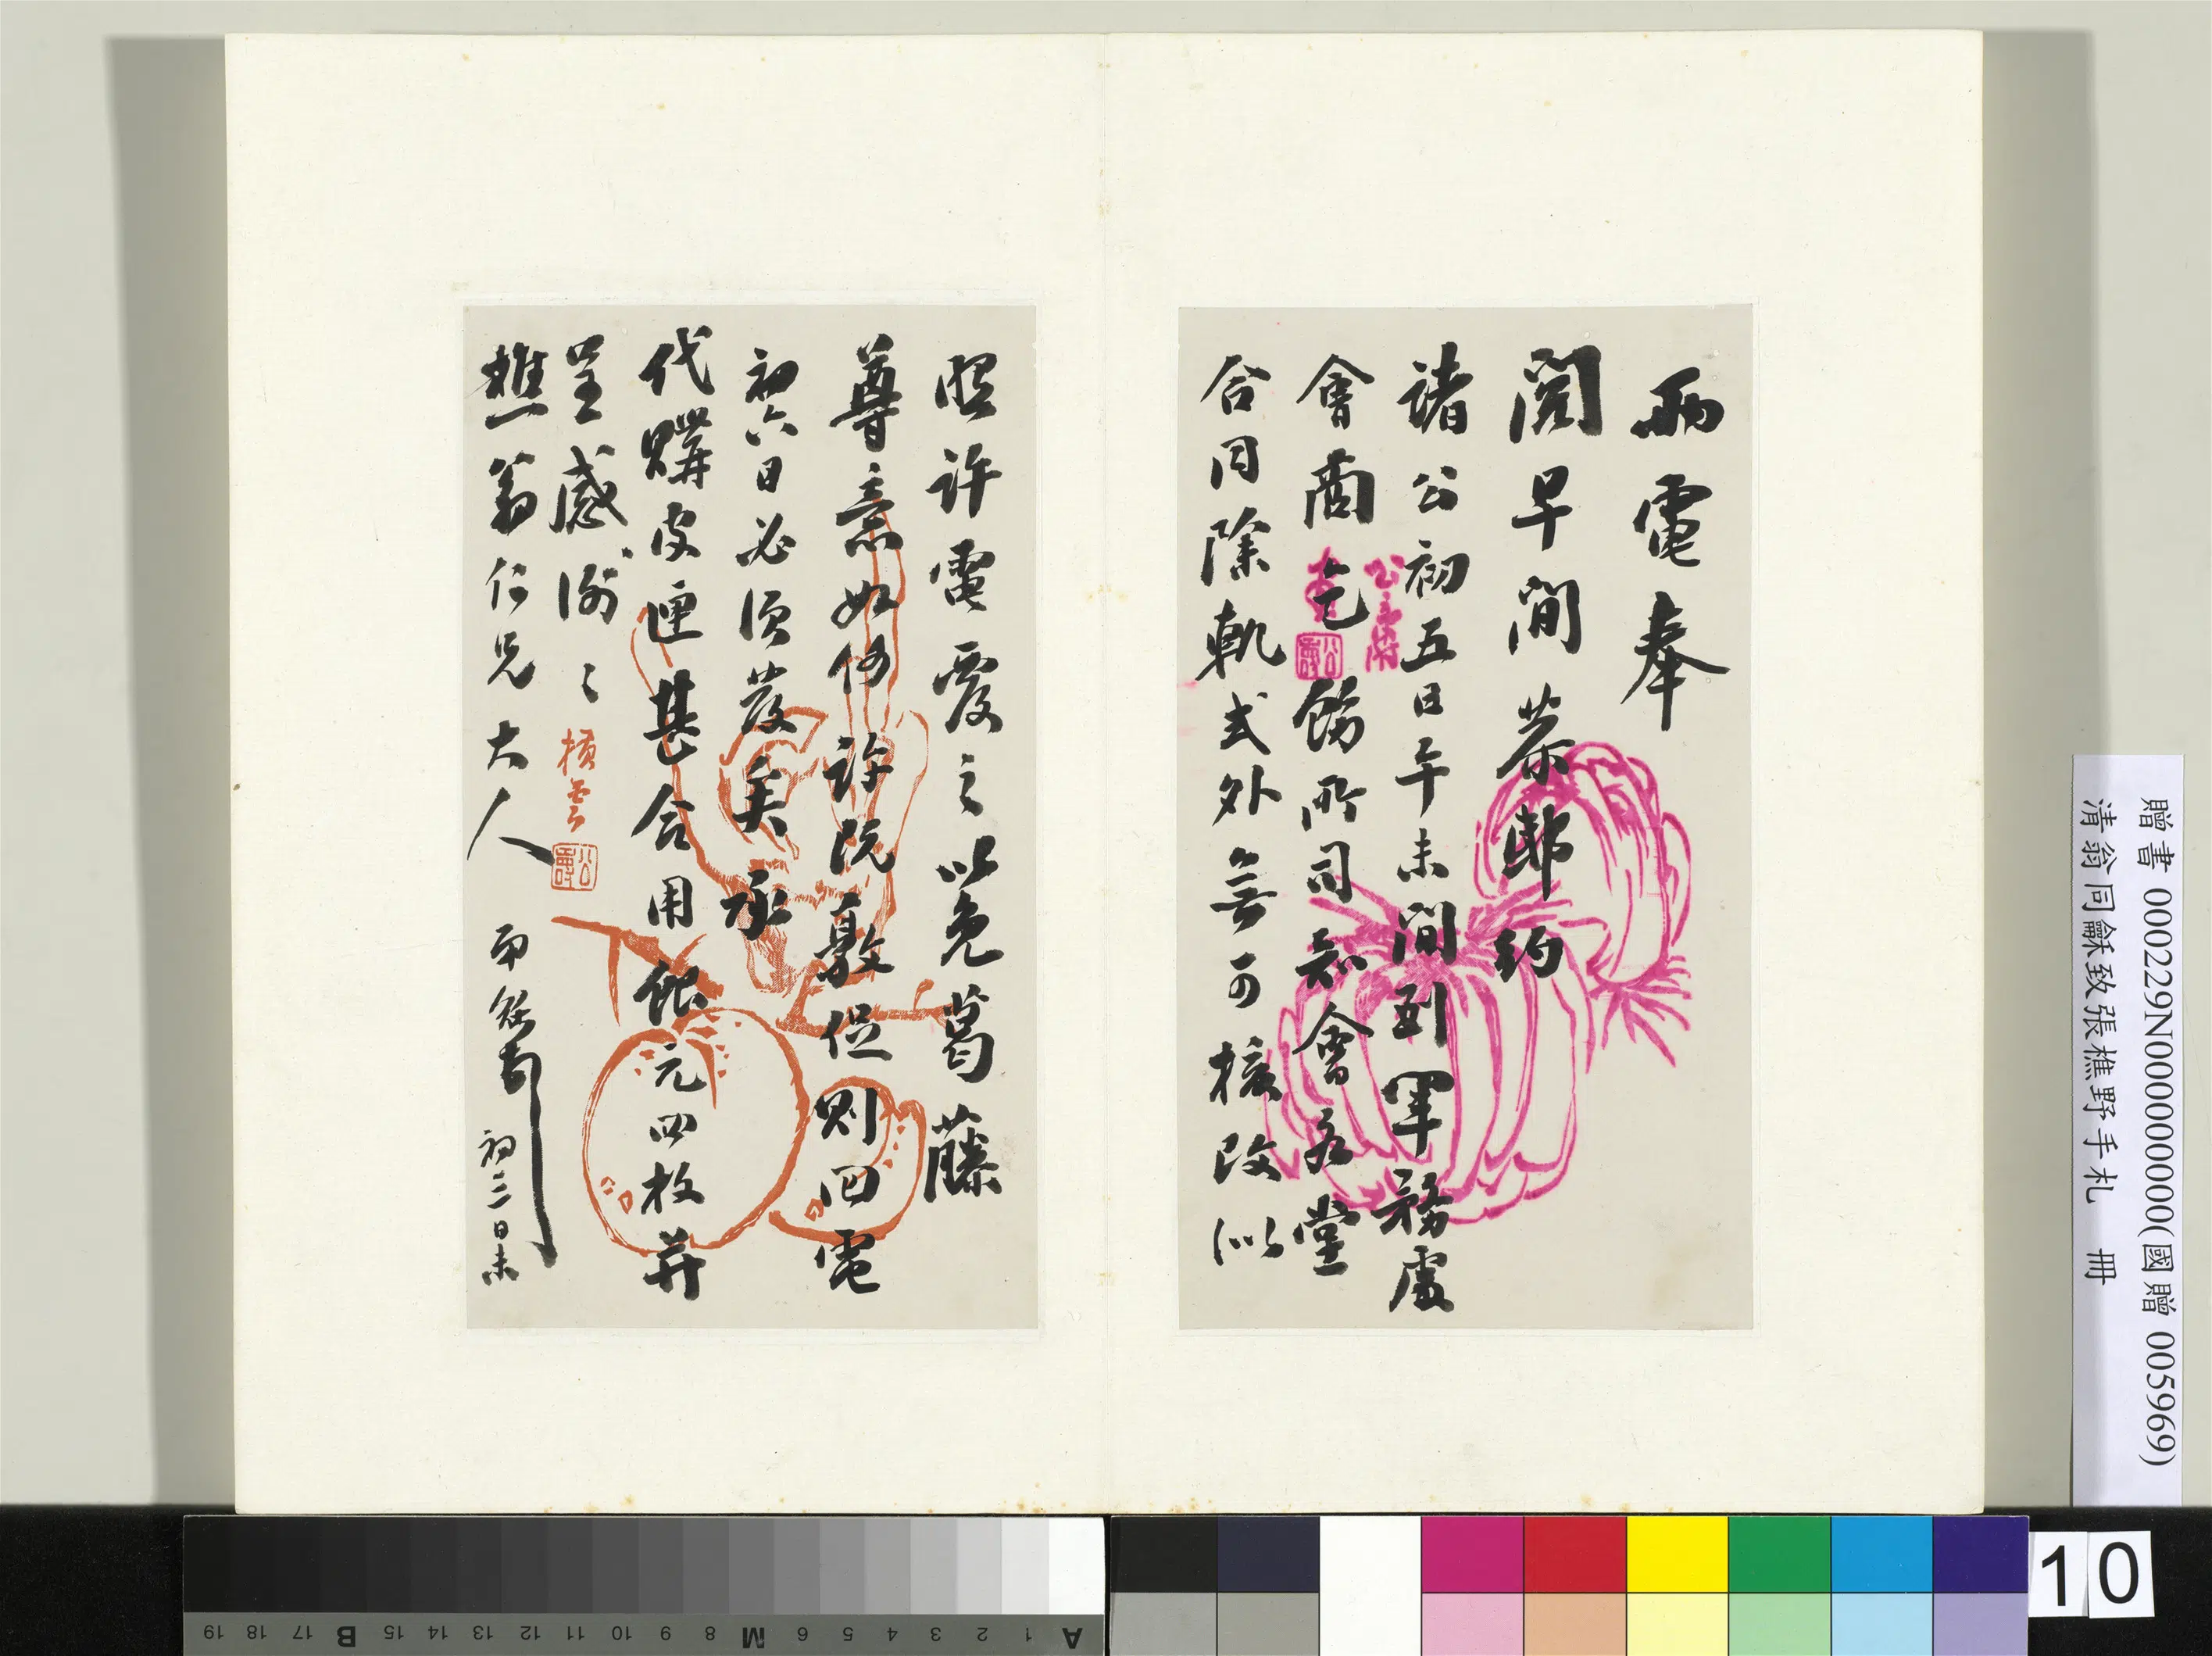 兩電奉
閱早間恭邸約
諸公初五日午未間到軍務處
會商乞飭所司知會各堂
合同除軌式外無可核改似
照許電覆之以免葛藤
尊意如何許既敦促則回電
初六日必須發矣承
代購皮匣甚合用銀元四枚并
呈感謝〻
樵翁仁兄大人
初三日未
贈書 000229N000000000(國贈 005969)
清翁同龢致張樵野手札 冊
10
A 1 2 3 4 5 6 M 8 9 10 11 12 13 14 15 B 17 18 19